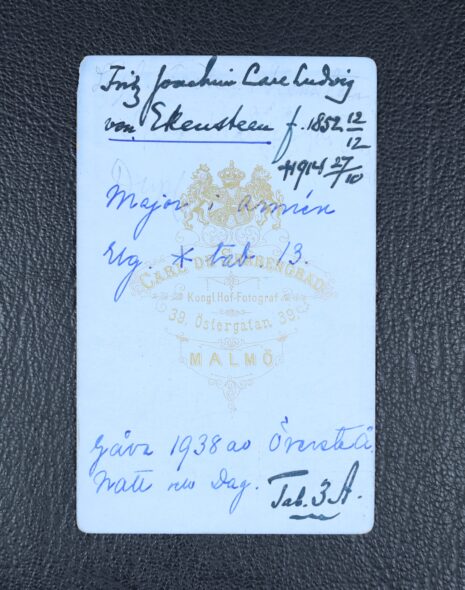 Fritz Joachim Carl Ludvig
von Ekensteen f. 1852 12/12
†1914 27/10
Major i armén
Elg. * tab. 13.
CARL DE SHARENGRAD
Kongl Hof-Fotograf
39. Östergatan 39.
MALMÖ.
Gåva 1938 av Överste Å
Natt och Dag.
Tab. 3 A.